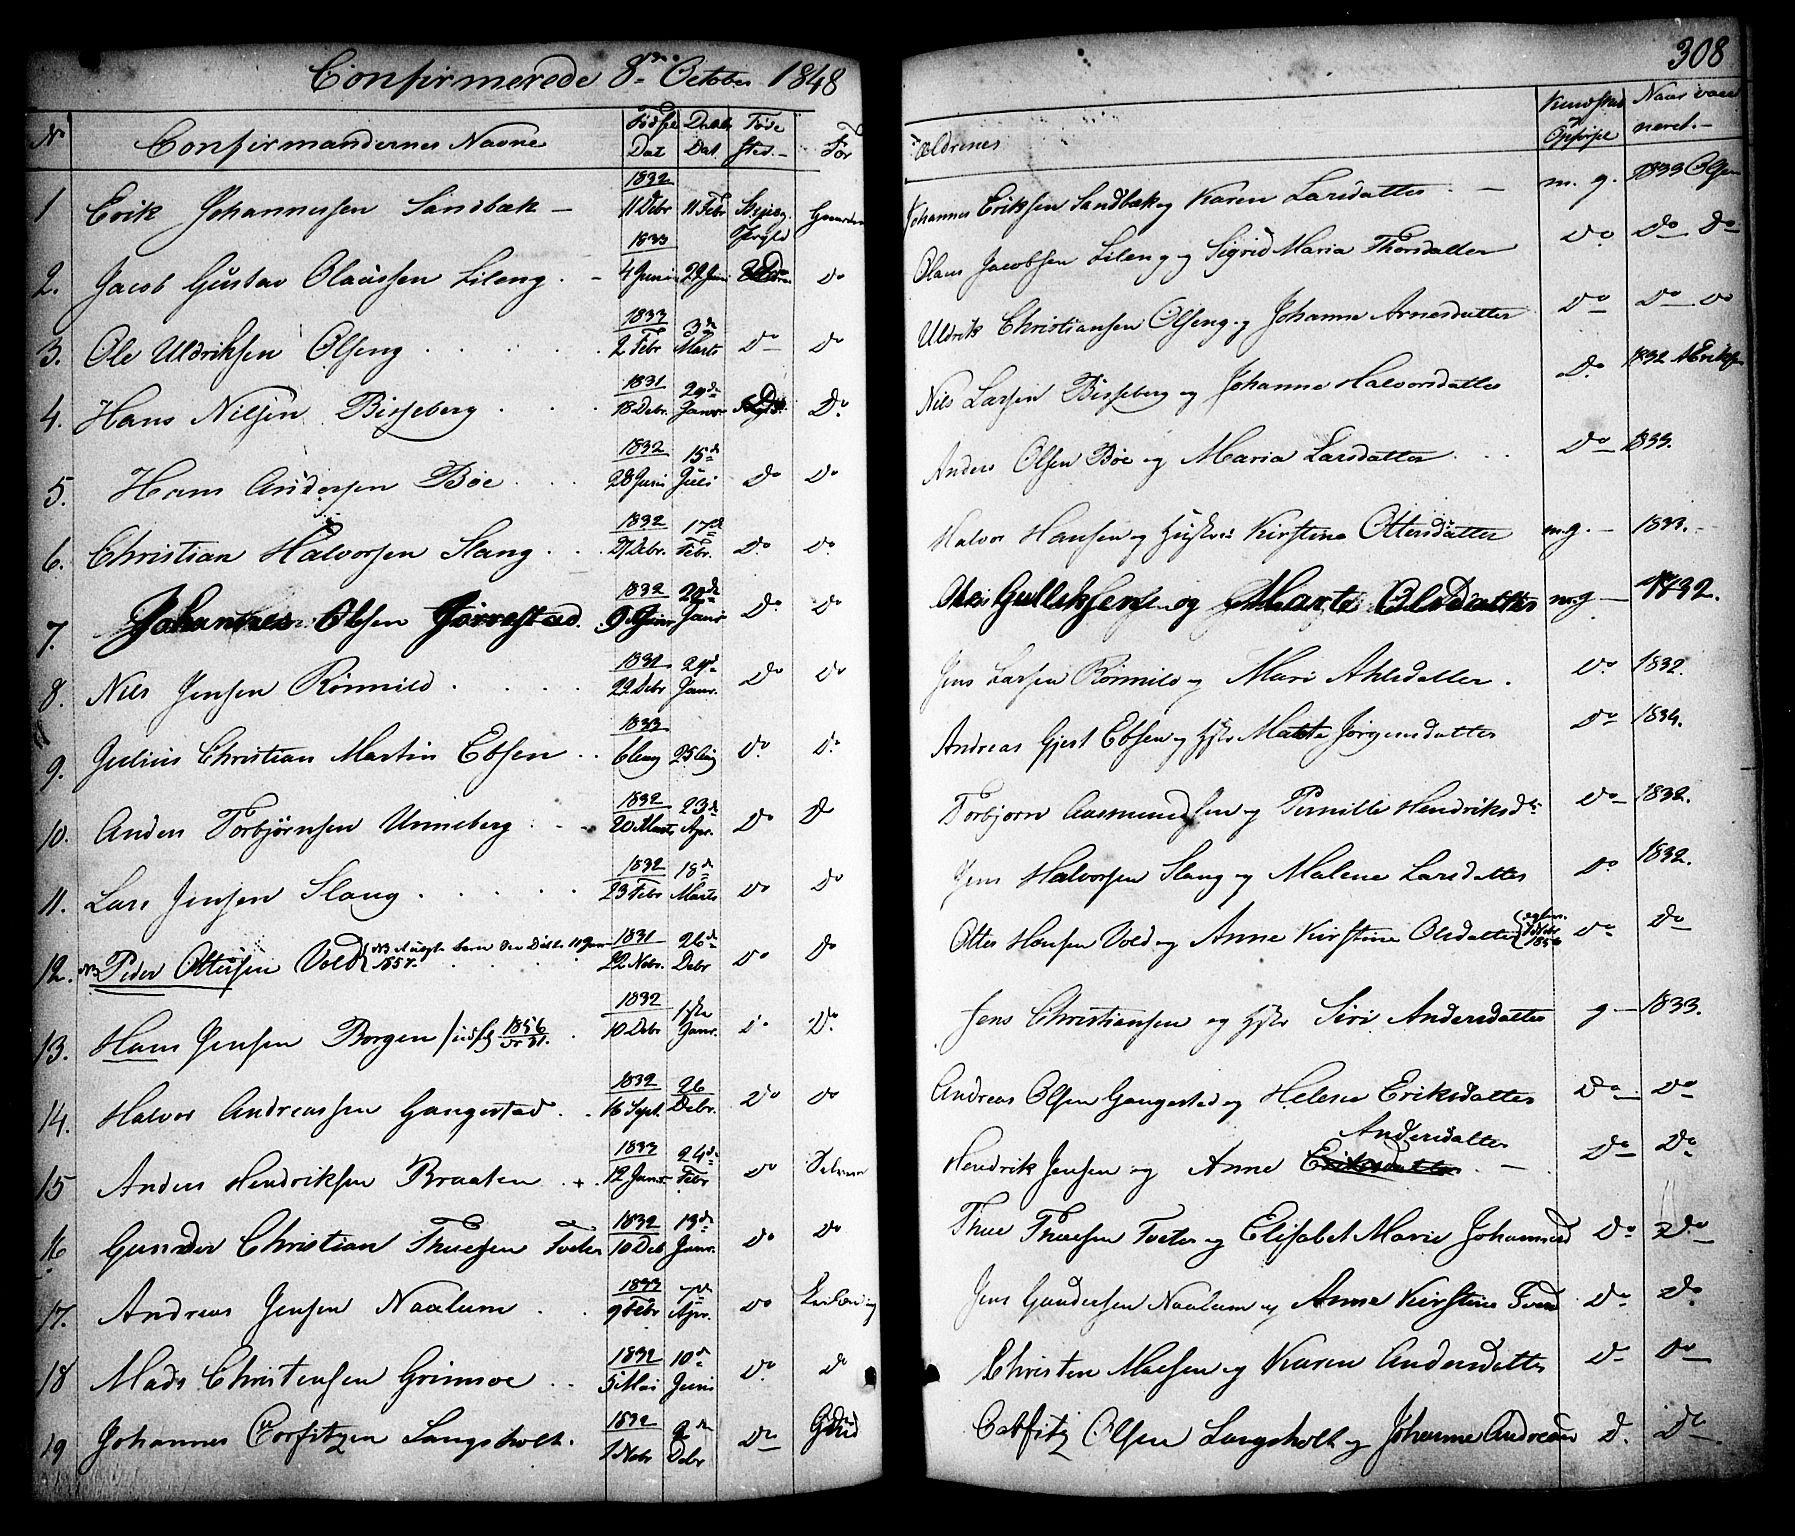 Confirmerede 8de October 1848
308
No Confirmandernes Navne Fødsel Dat Daabs Dat. Føde sted. For ældrenes Kundskab Opførsel Naar vacci neret.
1 Erik Johannessen Sandbæk 1832 11 Debr 11 Febr Gaarden Johannes Eriksen Sandbæk og Karen Larsdatter m. g. 1833 Olsen
2. Jacob Gustav Olaussen Lileng 1833 4 Juni Do Olaus Jacobsen Lileng og Sigrid Maria Thorsdatter Do Do Do
3. Ole Uldriksen Olseng 1833 2 Febr 3de Marts Do Do Uldrik Christiansen Olseng og Johanne Arnesdatter Do Do Do
4. Hans Nilsen Bisseberg 1831 18 Debr. 29de Janr Do Nils Larsen Bisseberg og Johanne Halvorsdatter Do 1832 A Eriksen
5. Hans Andersen Bøe 1832 28 Juni 15de Juli Do Do Anders Olsen Bøe og Maria Larsdatter Do 1833.
6. Christian Halvorsen Slang 1832 27 Debr. 17de Febr. Do Do Halvor Hansen og Hustru Kirstine Ottersdatter m.g. 1833.
7. Johannes Olsen Jørrestad 1832 9 Janr Do Do Gulliksen og Marte Olsdatter m.g. 1832.
8. Nils Jensen Rønnild 1831 22 Debr 29de Janr. Do Do Jens Larsen Rønnild og Mari Ahlsdatter Do 1832.
9. Julius Christian Martin Ebsen 1833 6 Aug 25 Aug Do Do Andreas Gjert Ebsen og Hstr Jørgensdatter Do 1834.
10. Anders Torbjørnsen Unneberg 1832 20 Marts 23de Apr. Do Do Torbjørn Aasmundsen og Pernille Hendriksdtr Do 1832.
11. Lars Jensen Slang 1832 23 Febr 18de Marts Do Do Jens Halvorsen Slang og Malene Larsdatter Do 1832.
12. NB Peder Ottersen Vold 1857. 1831 22 Nobr. 26de Debr Do Do Otter Hansen Vold og Anne Kirstine Olsdatter 1856 Do Do
13. Hans Jensen Borgen 1856 1832 10 Debr 1ste Janr. Do Do Jens Christiansen og Hstr Siri Andersdatter g 1833.
14. Halvor Andreassen Gangestad 1832 16 Sept. 26 Debr. Do Do Andreas Olsen Gangestad og Helene Eriksdatter Do Do
15 Anders Hendriksen Braaten 1833 12 Janr 24de Febr Do Hendrik Jensen og Anne Eriksdatter Andersdatter Do Do
16 Gunder Christian Thuesen Foeter 1832 10 Deb 13de Janr. Do Do Thue Thuesen Foeter og Elisabet Marie Johannesd Do Do
17. Andreas Jensen Naalum 1833 9 Febr 7de Apr. Do Jens Gundersen Naalum og Anne Kirstine Do Do
18 Mads Christensen Grimsøe 1832 5 Mai 10de Juni Do Do Christen Madsen og Karen Andersdatter Do Do
19 Johannes Corfitzen Langsholt. 1832 1 Nobr 2de Debr Do Corfitz Olsen Langsholt og Johanne Andreasd Do Do